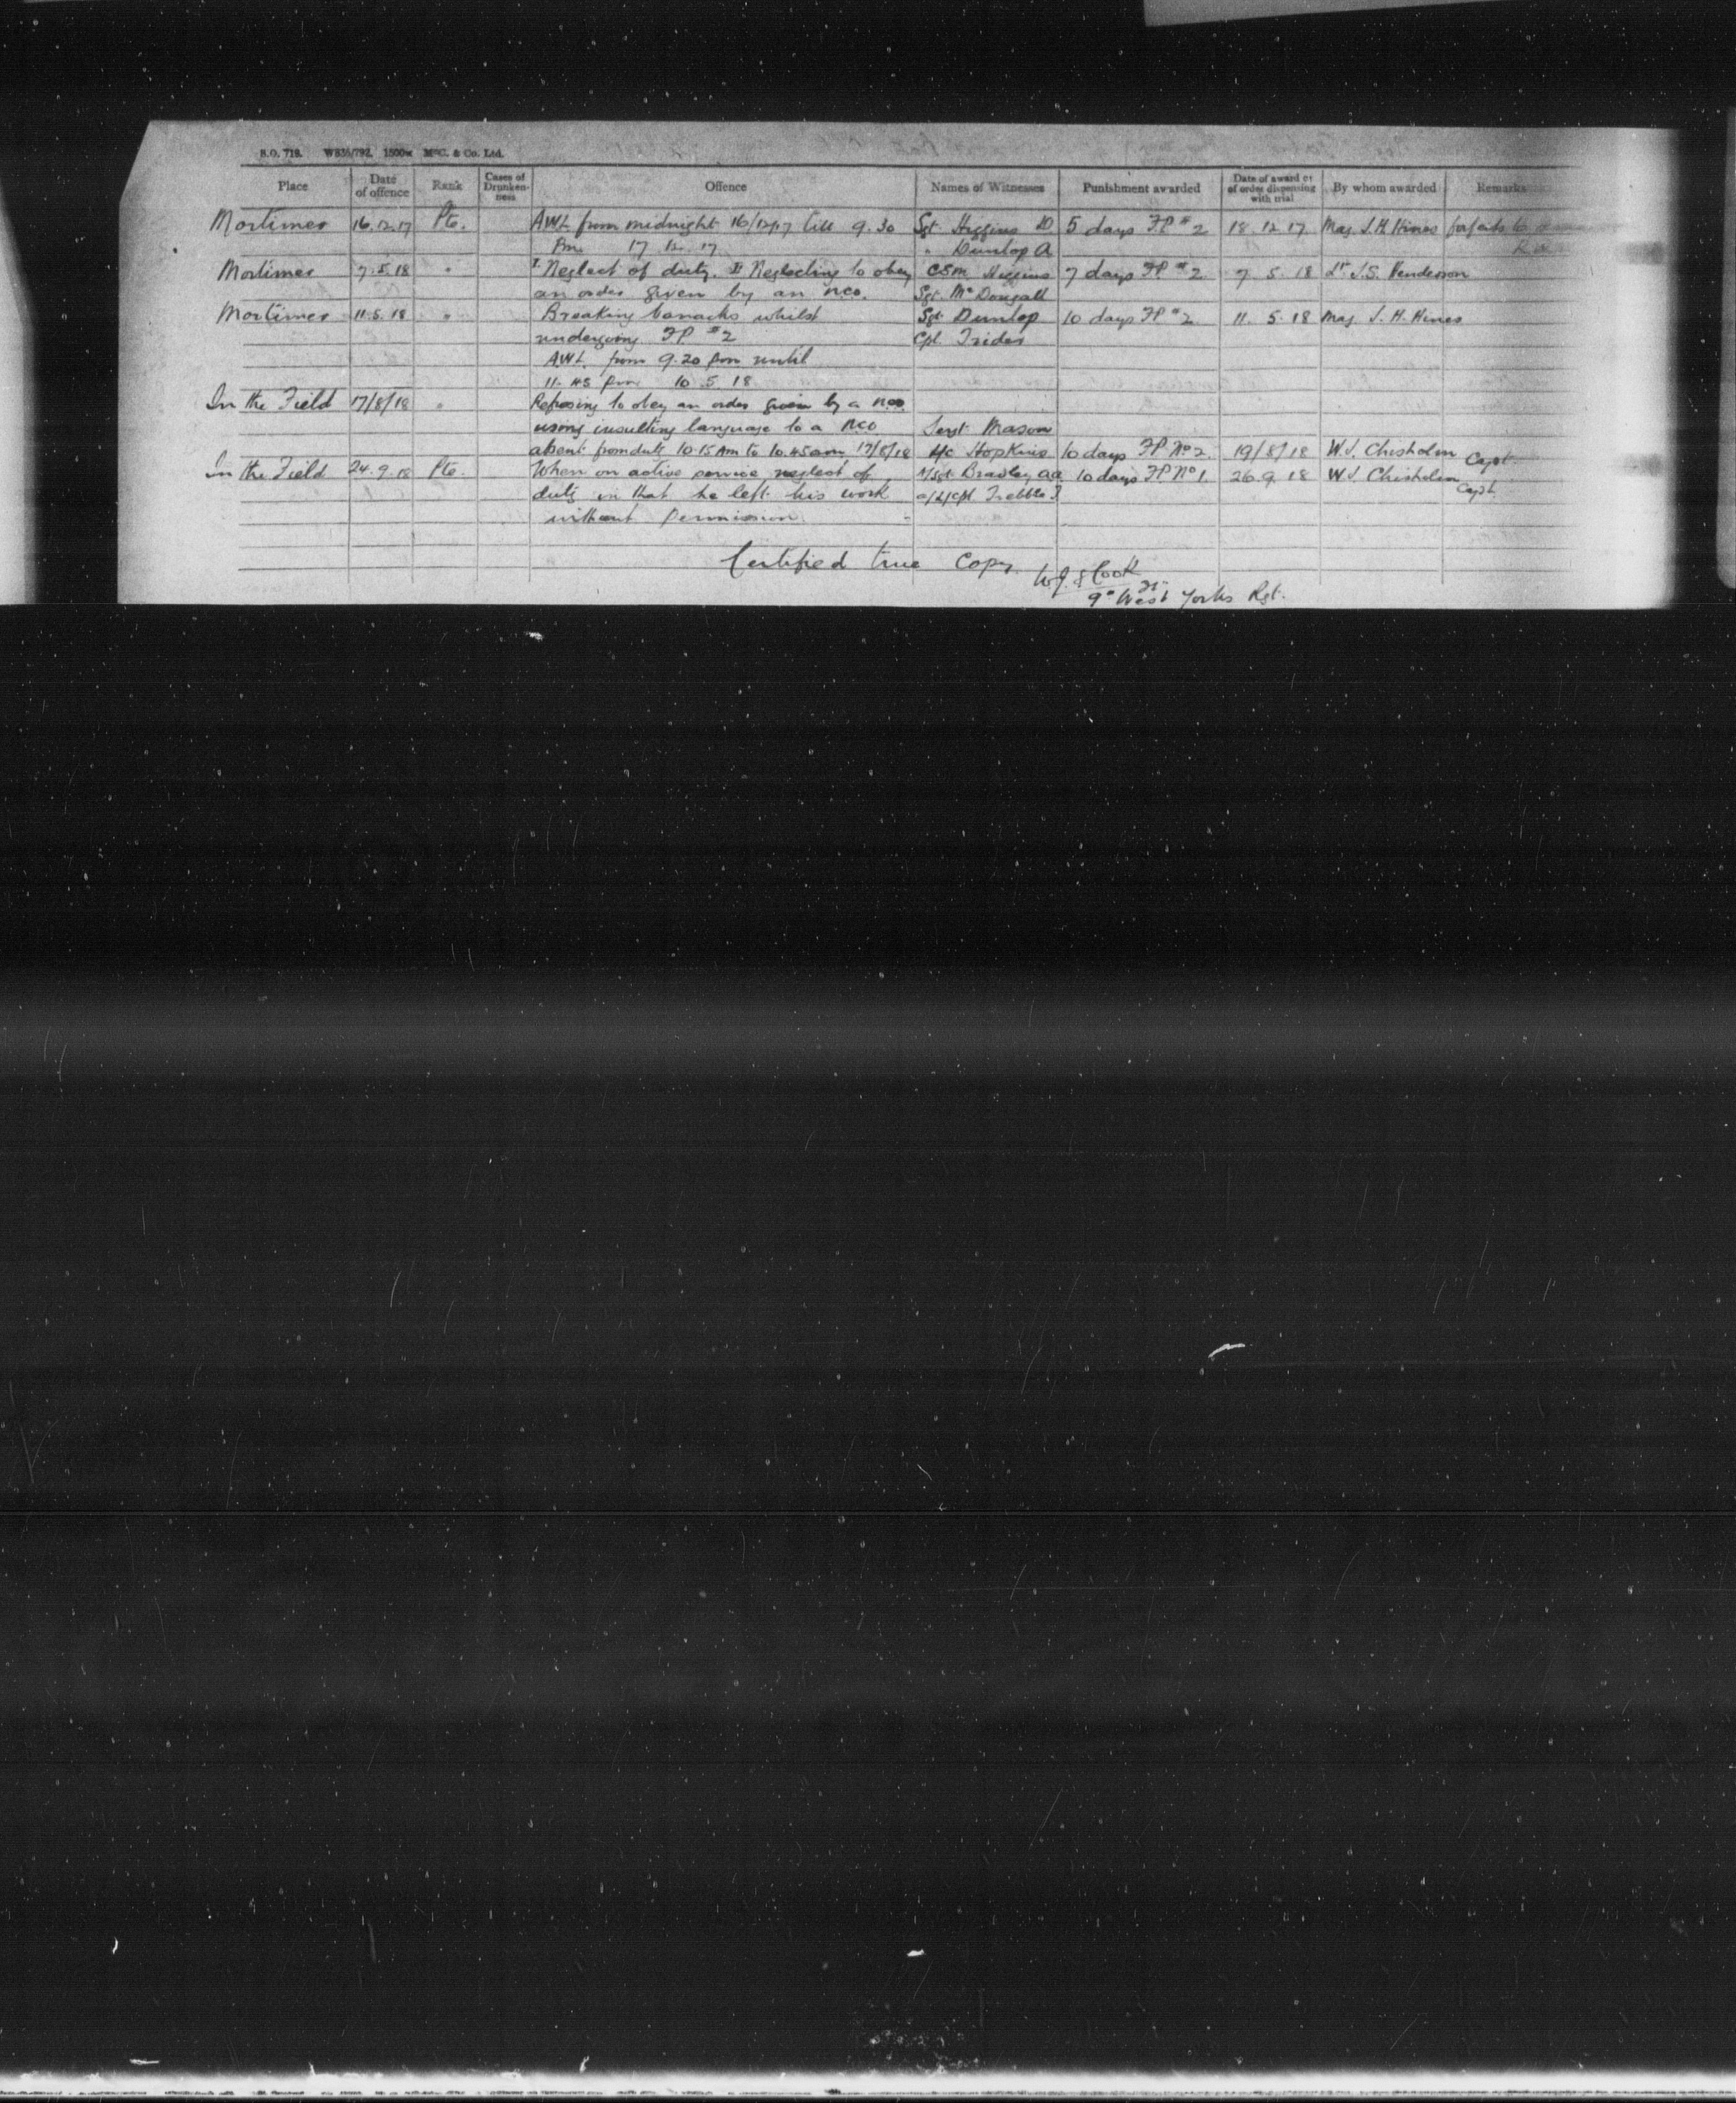 B.O. 718. W836/792. 1500M McC. & Co. Ltd.
Place Date of offence Rank Cases of Drunken-ness Offence Names of Witnesses Punishment awarded Date of award or of order dispensing with trial By whom awarded Remarks
Mortimer 16.12.17 Pte. AWL from midnight 16/12/17 till 9.30 Sgt. Higgins D 5 days FP #2 18.12.17 Maj. J.H. Hines forfeits
Pm. 17.12.17 " Dunlop A
Mortimer 7.5.18 " I Neglect of duty. II Neglecting to obey CSM Higgins 7 days FP #2. 7.5.18 Lt J.S. Henderson
an order given by an NCO. Sgt. McDougall
Mortimer 11.5.18 " Breaking barracks whilst Sgt. Dunlop 10 days FP #2 11.5.18 Maj J.H. Hines
undergoing FP #2 Cpl.
AWL from 9.20 pm until
11.45 pm 10.5.18
In the Field 17/8/18 " Refusing to obey an order given by a NCO.
using insulting language to a NCO Sergt. Mason
absent from duty 10.15 Am to 10.45 am 17/8/18 Hopkins 10 days FP No 2. 19/8/18 W.J. Chisholm Capt
In the Field 24.9.18 Pte. When on active service neglect of A/Sgt. Bradley 10 days FP No 1. 26.9.18 W.J. Chisholm Capt.
duty in that he left his work a/L/Cpl
without permission.
Certified true Copy. Cook
9th West Yorks Rgt.